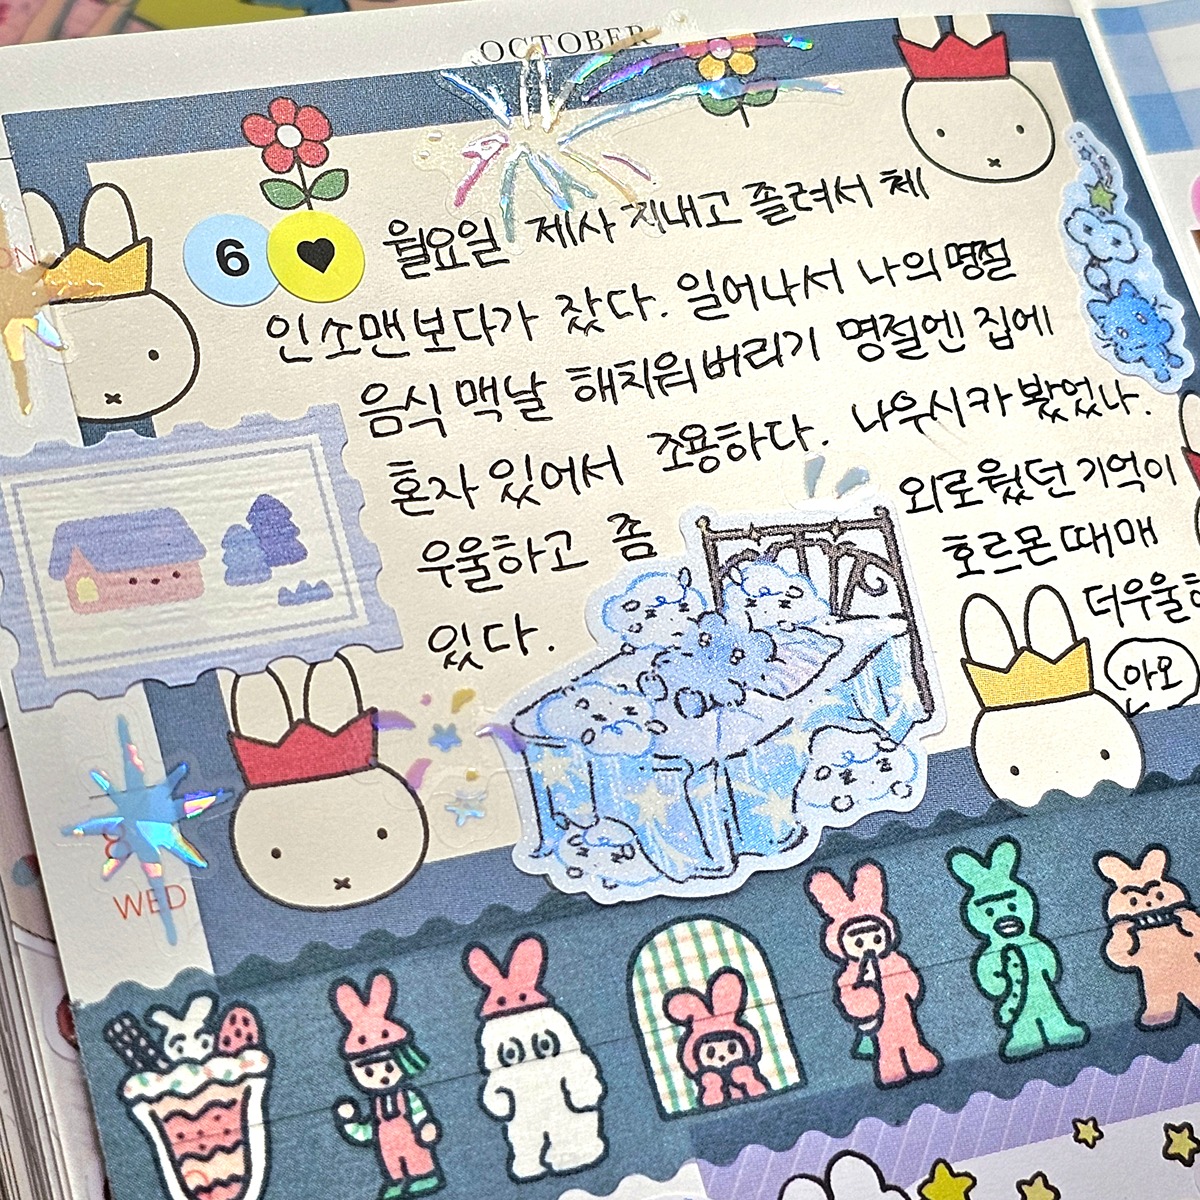 OCTOBER
6 월요일 제사 지내고 졸려서 체
인소맨보다가 잤다. 일어나서 나의 명절
음식 맥날 해치워버리기 명절엔 집에
혼자 있어서 조용하다. 나우시카 봤었나.
우울하고 좀
있다.
외로웠던 기억이
호르몬 때매
더우울
아오
8
WED